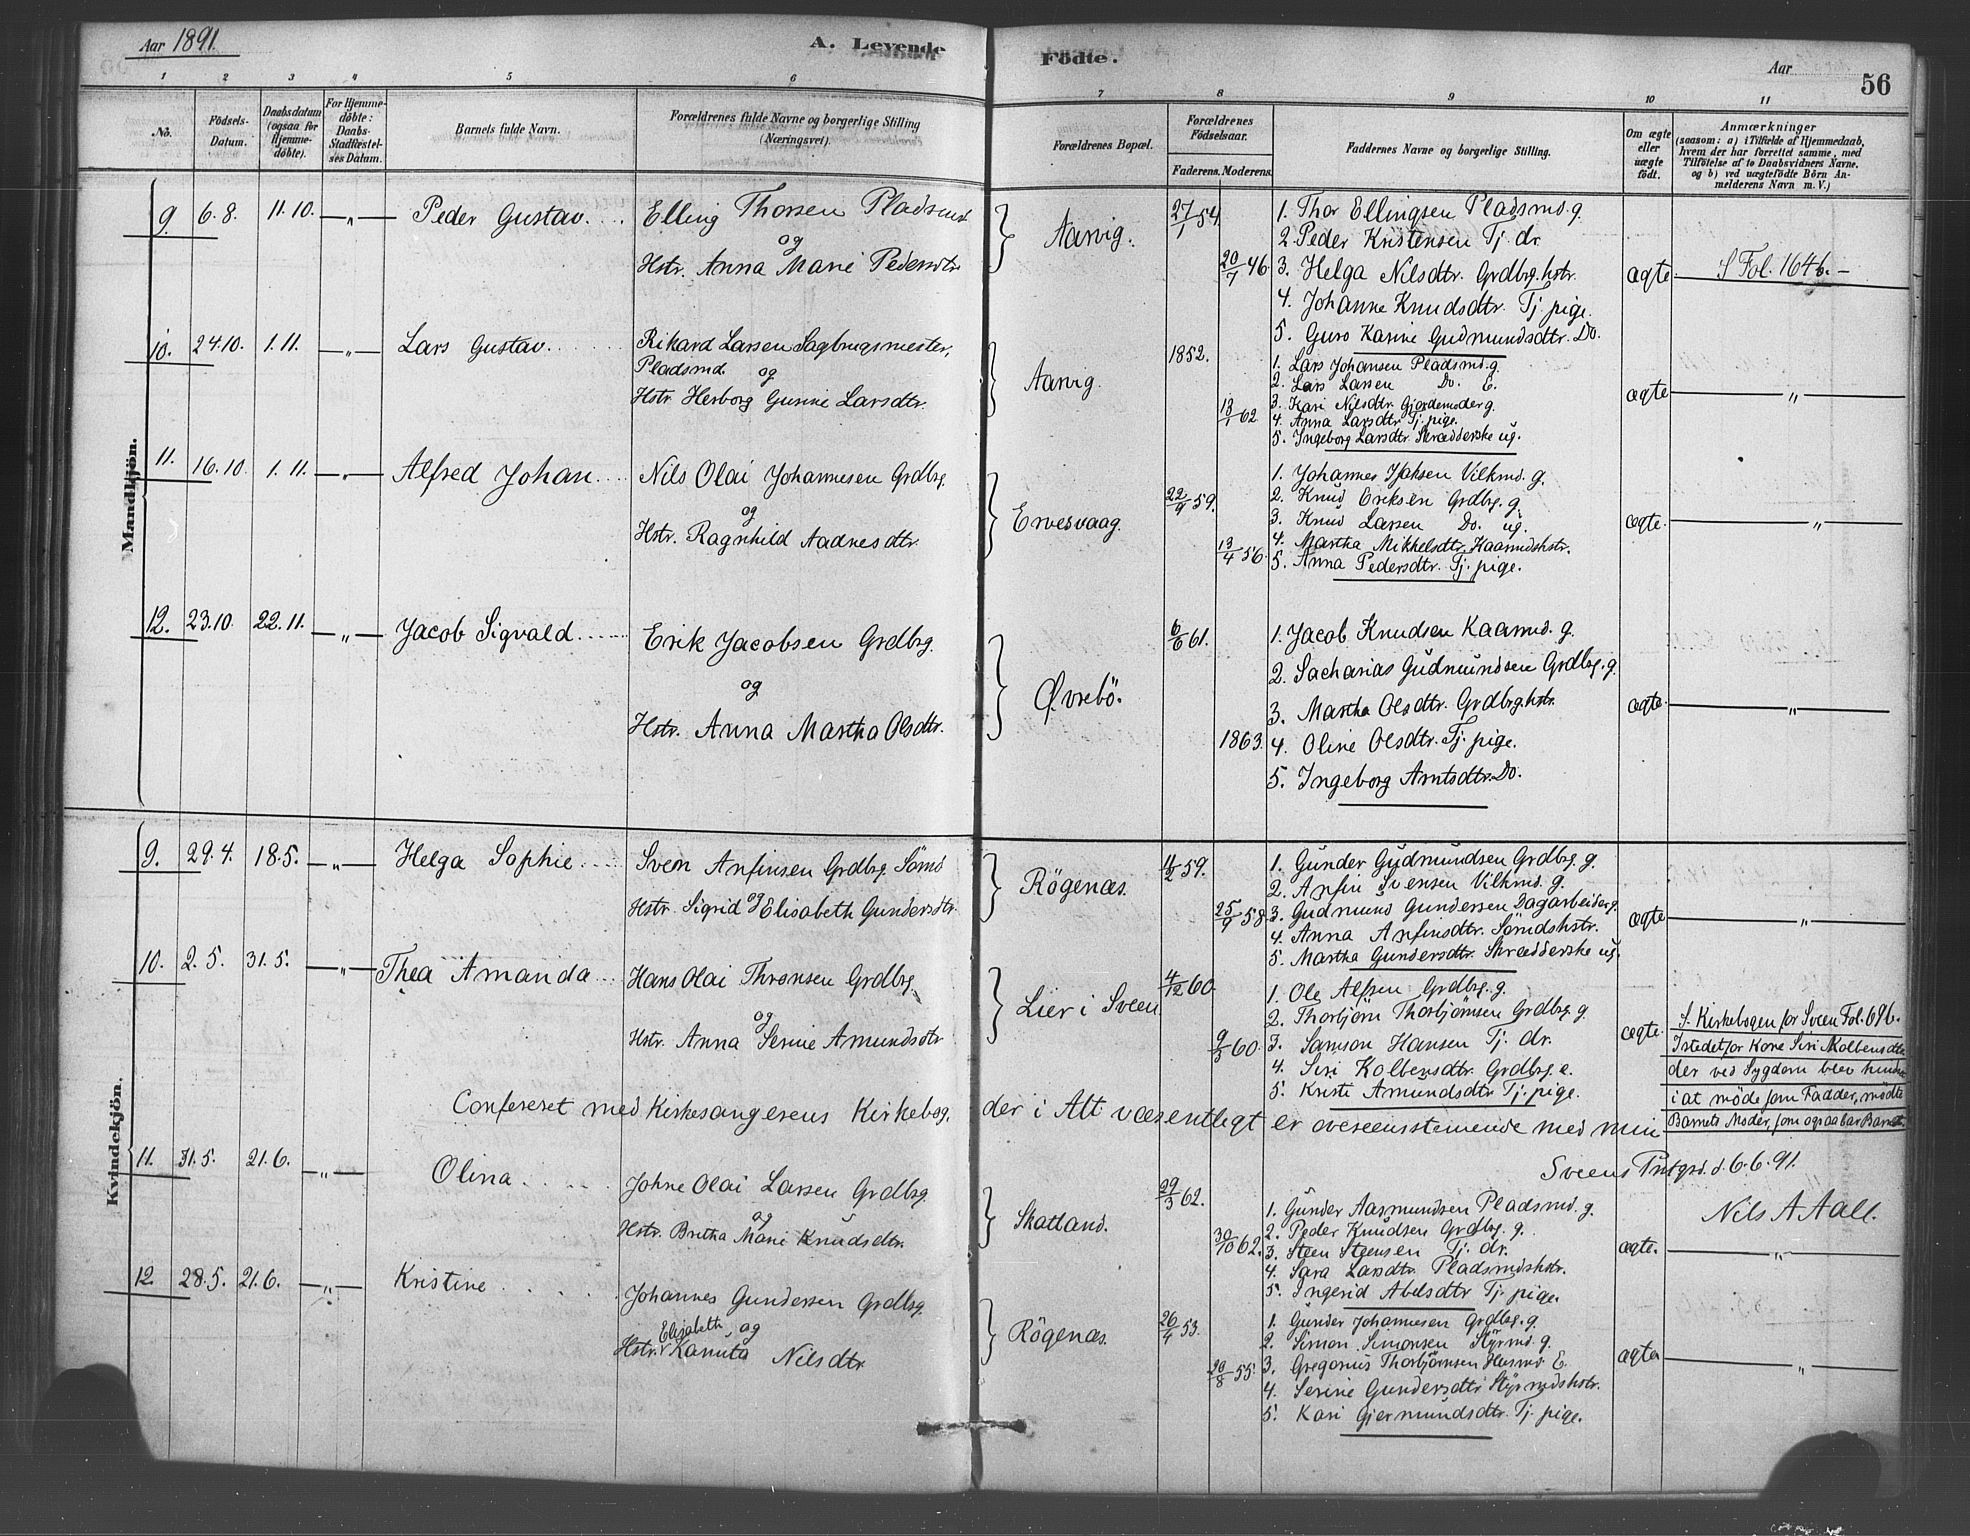 Aar 1891.
A. Levende Födte.
Aar
56
1 2 3 4 5 6 7 8 9 10 11
No.
Födsels-Datum.
Daabsdatum (ogsaa for Hjemme-döbte).
For Hjemme-döbte: Daabs-Stadfæstel-ses Datum.
Barnets fulde Navn.
Forældrenes fulde Navne og borgerlige Stilling (Næringsvei).
Forældrenes Bopæl.
Forældrenes Födselsaar.
Faderens. Moderens.
Faddernes Navne og borgerlige Stilling.
Om ægte eller uægte födt.
Anmærkninger
(saasom: a) i Tilfælde af Hjemmedaab, hvem der har forrettet samme, med Tilföielse af to Daabsvidners Navne, og b) ved uægtefödte Börn An-melderens Navn m. V.)
Mandkjön.
9. 6.8. 11.10. —„— Peder Gustav.
Elling Thorsen Pladsmd.
og
Hstr. Anna Marie Pedersdtr.
Aarvig.
27/1 54.
20/7 46
1. Thor Ellingsen Pladsmd. g.
2. Peder Kristensen Tj. dr.
3. Helga Nilsdtr. Grdbrg.hstr.
4. Johanne Knudsdtr. Tj. pige.
5. Guro Karine Gudmundsdtr. Do.
ægte
S Fol. 164 b. —
10. 24.10. 1.11. —„— Lars Gustav.
Rikard Larsen Sagbrugsmester,
Pladsmd. og
Hstr. Herborg Gurine Larsdtr.
Aarvig.
1852.
13/1 62
1. Lars Johansen Pladsmd. g.
2. Lars Larsen Do. E.
3. Kari Nilsdtr. Gjordemoder g.
4. Anna Larsdtr. Tj. pige.
5. Ingeborg Larsdtr. Skrædderske ug.
ægte
„
11. 16.10. 1.11. —„— Alfred Johan.
Nils Olai Johannesen Grdbrg.
og
Hstr. Ragnhild Aadnesdtr.
Ervesvaag.
22/9 59.
13/4 56.
1. Johannes Isaksen Vilkmd. g.
2. Knud Eriksen Grdbrg. g.
3. Knud Larsen Do. ug.
4. Martha Mikkelsdtr. Kaarmdshstr.
5. Anna Pedersdtr. Tj. pige.
ægte.
„
12. 23.10. 22.11. —„— Jacob Sigvald.
Erik Jacobsen Grdbrg.
og
Hstr. Anna Martha Olsdtr.
Øvrebö.
6/6 61.
1863.
1. Jacob Knudsen Kaarmd. g.
2. Sacharias Gudmundsen Grdbrg. g.
3. Martha Olsdtr. Grdbrg.hstr.
4. Oline Olsdtr. Tj. pige.
5. Ingeborg Arntsdtr. Do.
ægte.
„
Kvindekjön.
9. 29.4. 18.5. —„— Helga Sophie.
Sven Anfinsen Grdbrg. Sömd
og
Hstr. Sigrid Elisabeth Gundersdtr.
Rögenæs.
4/2 59.
25/9 58.
1. Gunder Gudmundsen Grdbrg. g.
2. Anfin Svensen Vilkmd. g.
3. Gudmund Gundersen Dagarbeider g.
4. Anna Anfinsdtr. Sömdshstr.
5. Martha Gundersdtr. Skrædderske ug.
ægte
„
10. 2.5. 31.5. —„— Thea Amanda
Hans Olai Thronsen Grdbrg.
og
Hstr. Anna Serine Amundsdtr
Lier i Sveen.
4/12 60.
9/3 60.
1. Ole Alfsen Grdbrg. g.
2. Thorbjörn Thorbjörnsen Grdbrg. g.
3. Samson Hansen Tj. dr.
4. Siri Kolbensdtr. Grdbrg. e.
5. Kristi Amundsdtr Tj. pige.
ægte.
S. Kirkebogen for Sveen Fol. 69b.
Istedetfor Kone Siri Kolbensdtr.
der ved Sygdom blev hindret
i at möde som Fadder, mödte
Barnets Moder, som ogsaa bar Barnet.
Confereret med Kirkesangerens Kirkebog, der i Alt væsentligt er overeensstemende med min
Sveens Prstgrd. d. 6.6.91.
Nils A Aall.
11. 31.5. 21.6. —„— Olina.
Johne Olai Larsen Grdbrg.
og
Hstr. Britha Marie Knudsdtr.
Skatland.
29/3 62.
30/10 62.
1. Gunder Aasmundsen Pladsmd. g.
2. Peder Knudsen Grdbrg. g.
3. Steen Steensen Tj. dr.
4. Sara Larsdtr. Pladsmdshstr.
5. Ingerid Abelsdtr Tj. pige.
ægte.
„
12. 28.5. 21.6. —„— Kristine
Johannes Gundersen Grdbrg.
Elisabeth og
Hstr. Kanuta Nilsdtr.
Rögenæs.
26/4 53.
20/8 55.
1. Gunder Johannesen Grdbrg. g.
2. Simon Simonsen Styrmd. g.
3. Gregorius Thorbjörnsen Husmd E.
4. Serine Gundersdtr Styrmdshstr.
5. Kari Gjermundsdtr. Tj. pige.
ægte
„